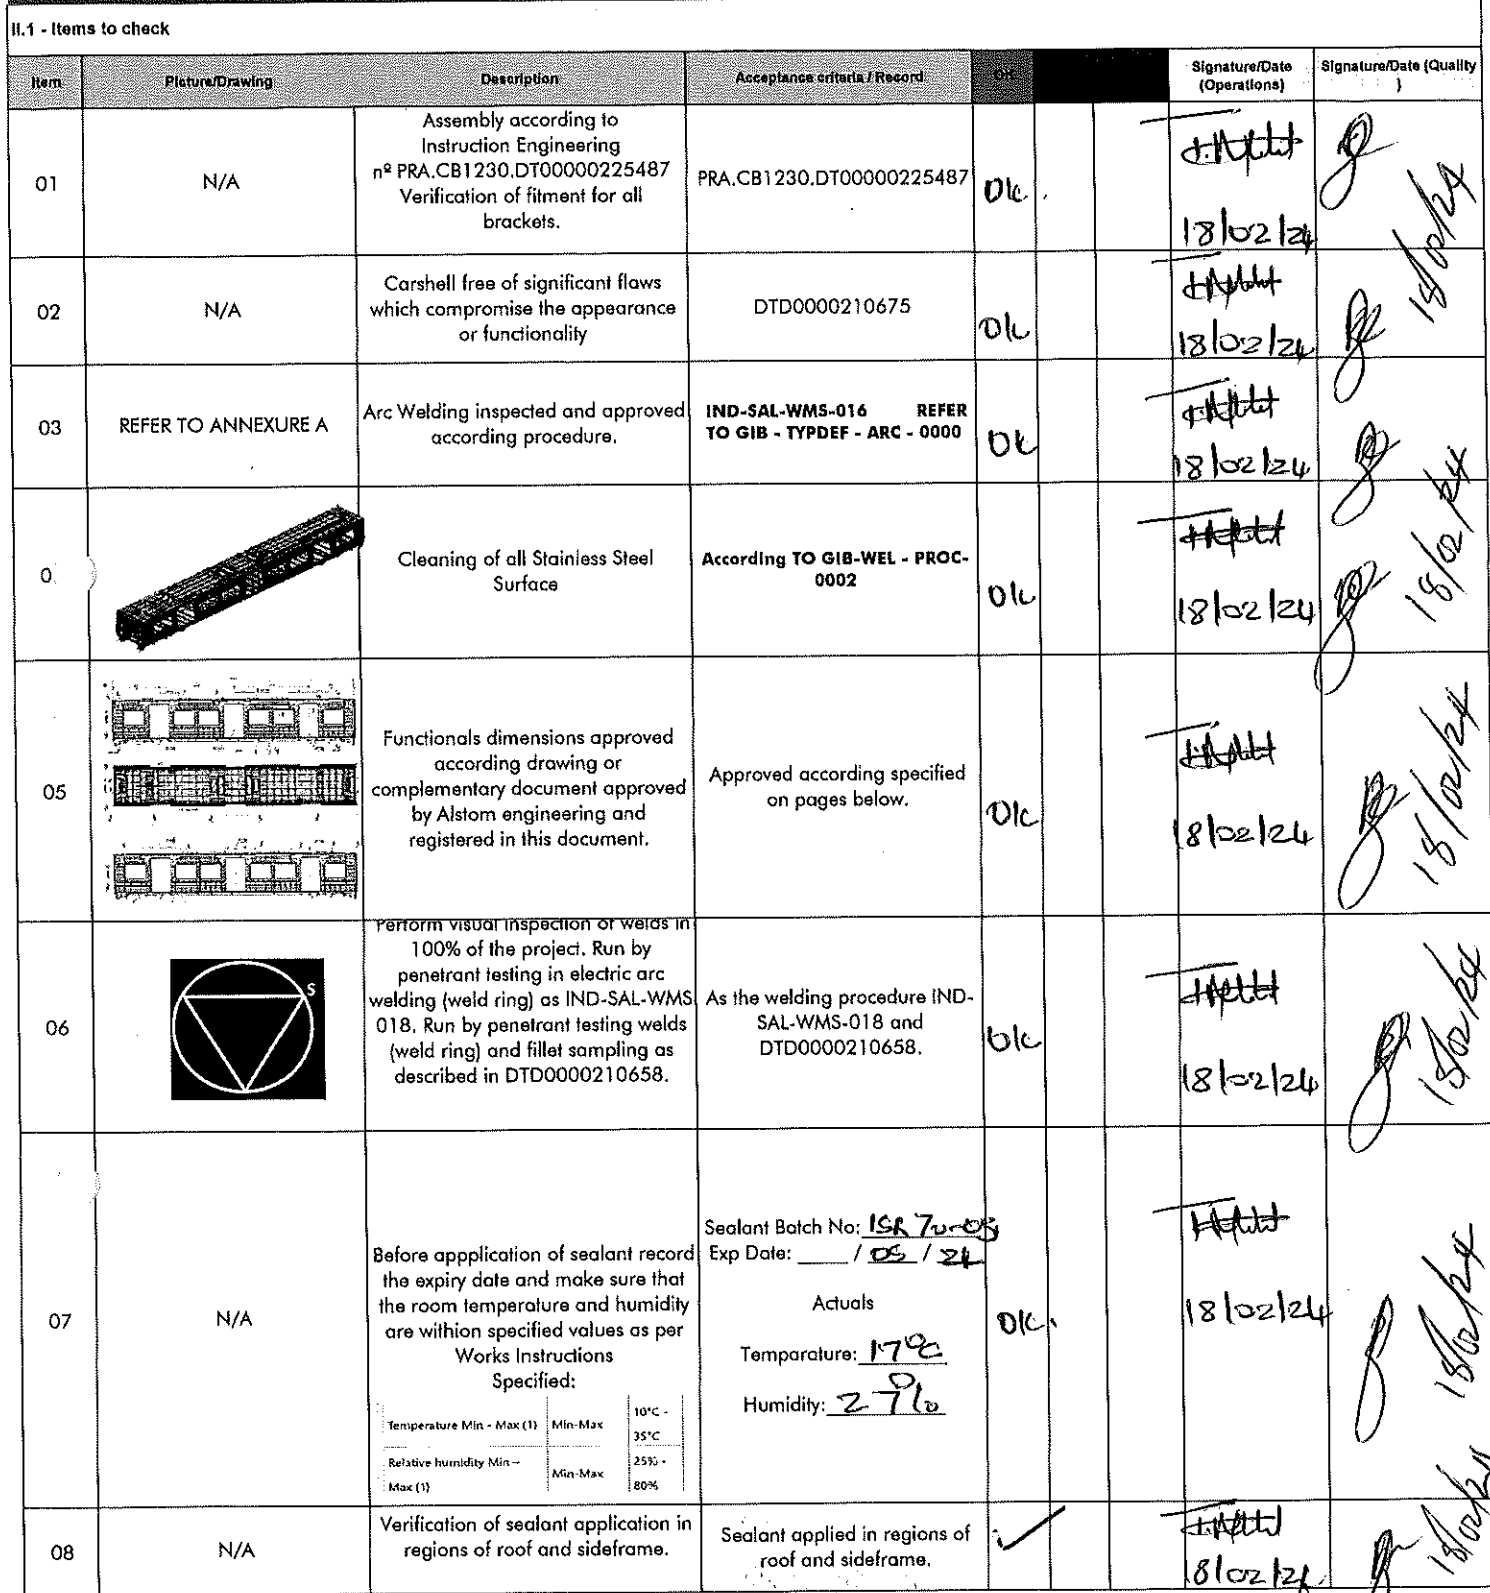 II.1 - Items to check
Item
Picture/Drawing
Description
Acceptance criteria / Record
OK
Signature/Date
(Operations)
Signature/Date (Quality
)
01
N/A
Assembly according to
Instruction Engineering
nº PRA.CB1230.DT00000225487
Verification of fitment for all
brackets.
PRA.CB1230.DT00000225487
Ok
18/02/24
18/02/24
02
N/A
Carshell free of significant flaws
which compromise the appearance
or functionality
DTD0000210675
Ok
18/02/24
03
REFER TO ANNEXURE A
Arc Welding inspected and approved
according procedure.
IND-SAL-WMS-016 REFER
TO GIB - TYPDEF - ARC - 0000
Ok
18/02/24
18/02/24
0
Cleaning of all Stainless Steel
Surface
According TO GIB-WEL - PROC-
0002
Ok
18/02/24
05
Functionals dimensions approved
according drawing or
complementary document approved
by Alstom engineering and
registered in this document.
Approved according specified
on pages below.
Ok
18/02/24
18/02/24
06
S
Perform visual inspection of welds in
100% of the project. Run by
penetrant testing in electric arc
welding (weld ring) as IND-SAL-WMS
018. Run by penetrant testing welds
(weld ring) and fillet sampling as
described in DTD0000210658.
As the welding procedure IND-
SAL-WMS-018 and
DTD0000210658.
Ok
18/02/24
18/02/24
07
N/A
Before appplication of sealant record
the expiry date and make sure that
the room temperature and humidity
are withion specified values as per
Works Instructions
Specified:
Temperature Min - Max (1) Min-Max 10°C -
35°C
Relative humidity Min –
Max (1) Min-Max 25% -
80%
Sealant Batch No: ISR 70-05
Exp Date: ____ / 05 / 24
Actuals
Temparature: 17°C
Humidity: 27%
Ok.
18/02/24
18/02/24
08
N/A
Verification of sealant application in
regions of roof and sideframe.
Sealant applied in regions of
roof and sideframe.
✓
18/02/24
18/02/24